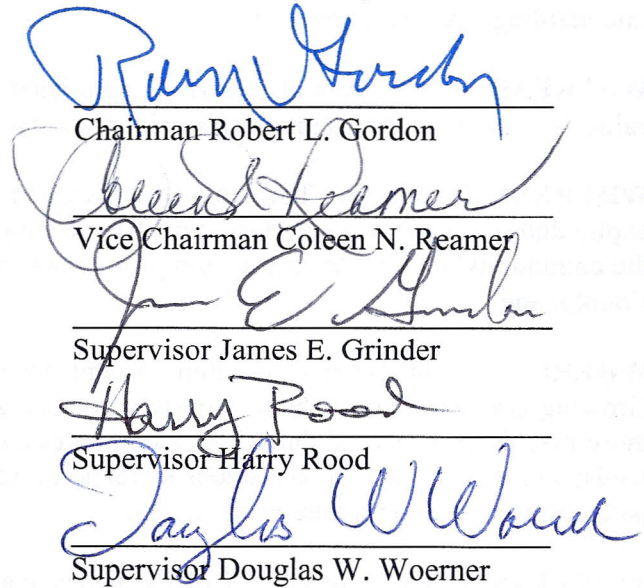 Robert L Gordon
Chairman Robert L. Gordon
Coleen N Reamer
Vice Chairman Coleen N. Reamer
James E Grinder
Supervisor James E. Grinder
Harry Rood
Supervisor Harry Rood
Douglas W Woerner
Supervisor Douglas W. Woerner